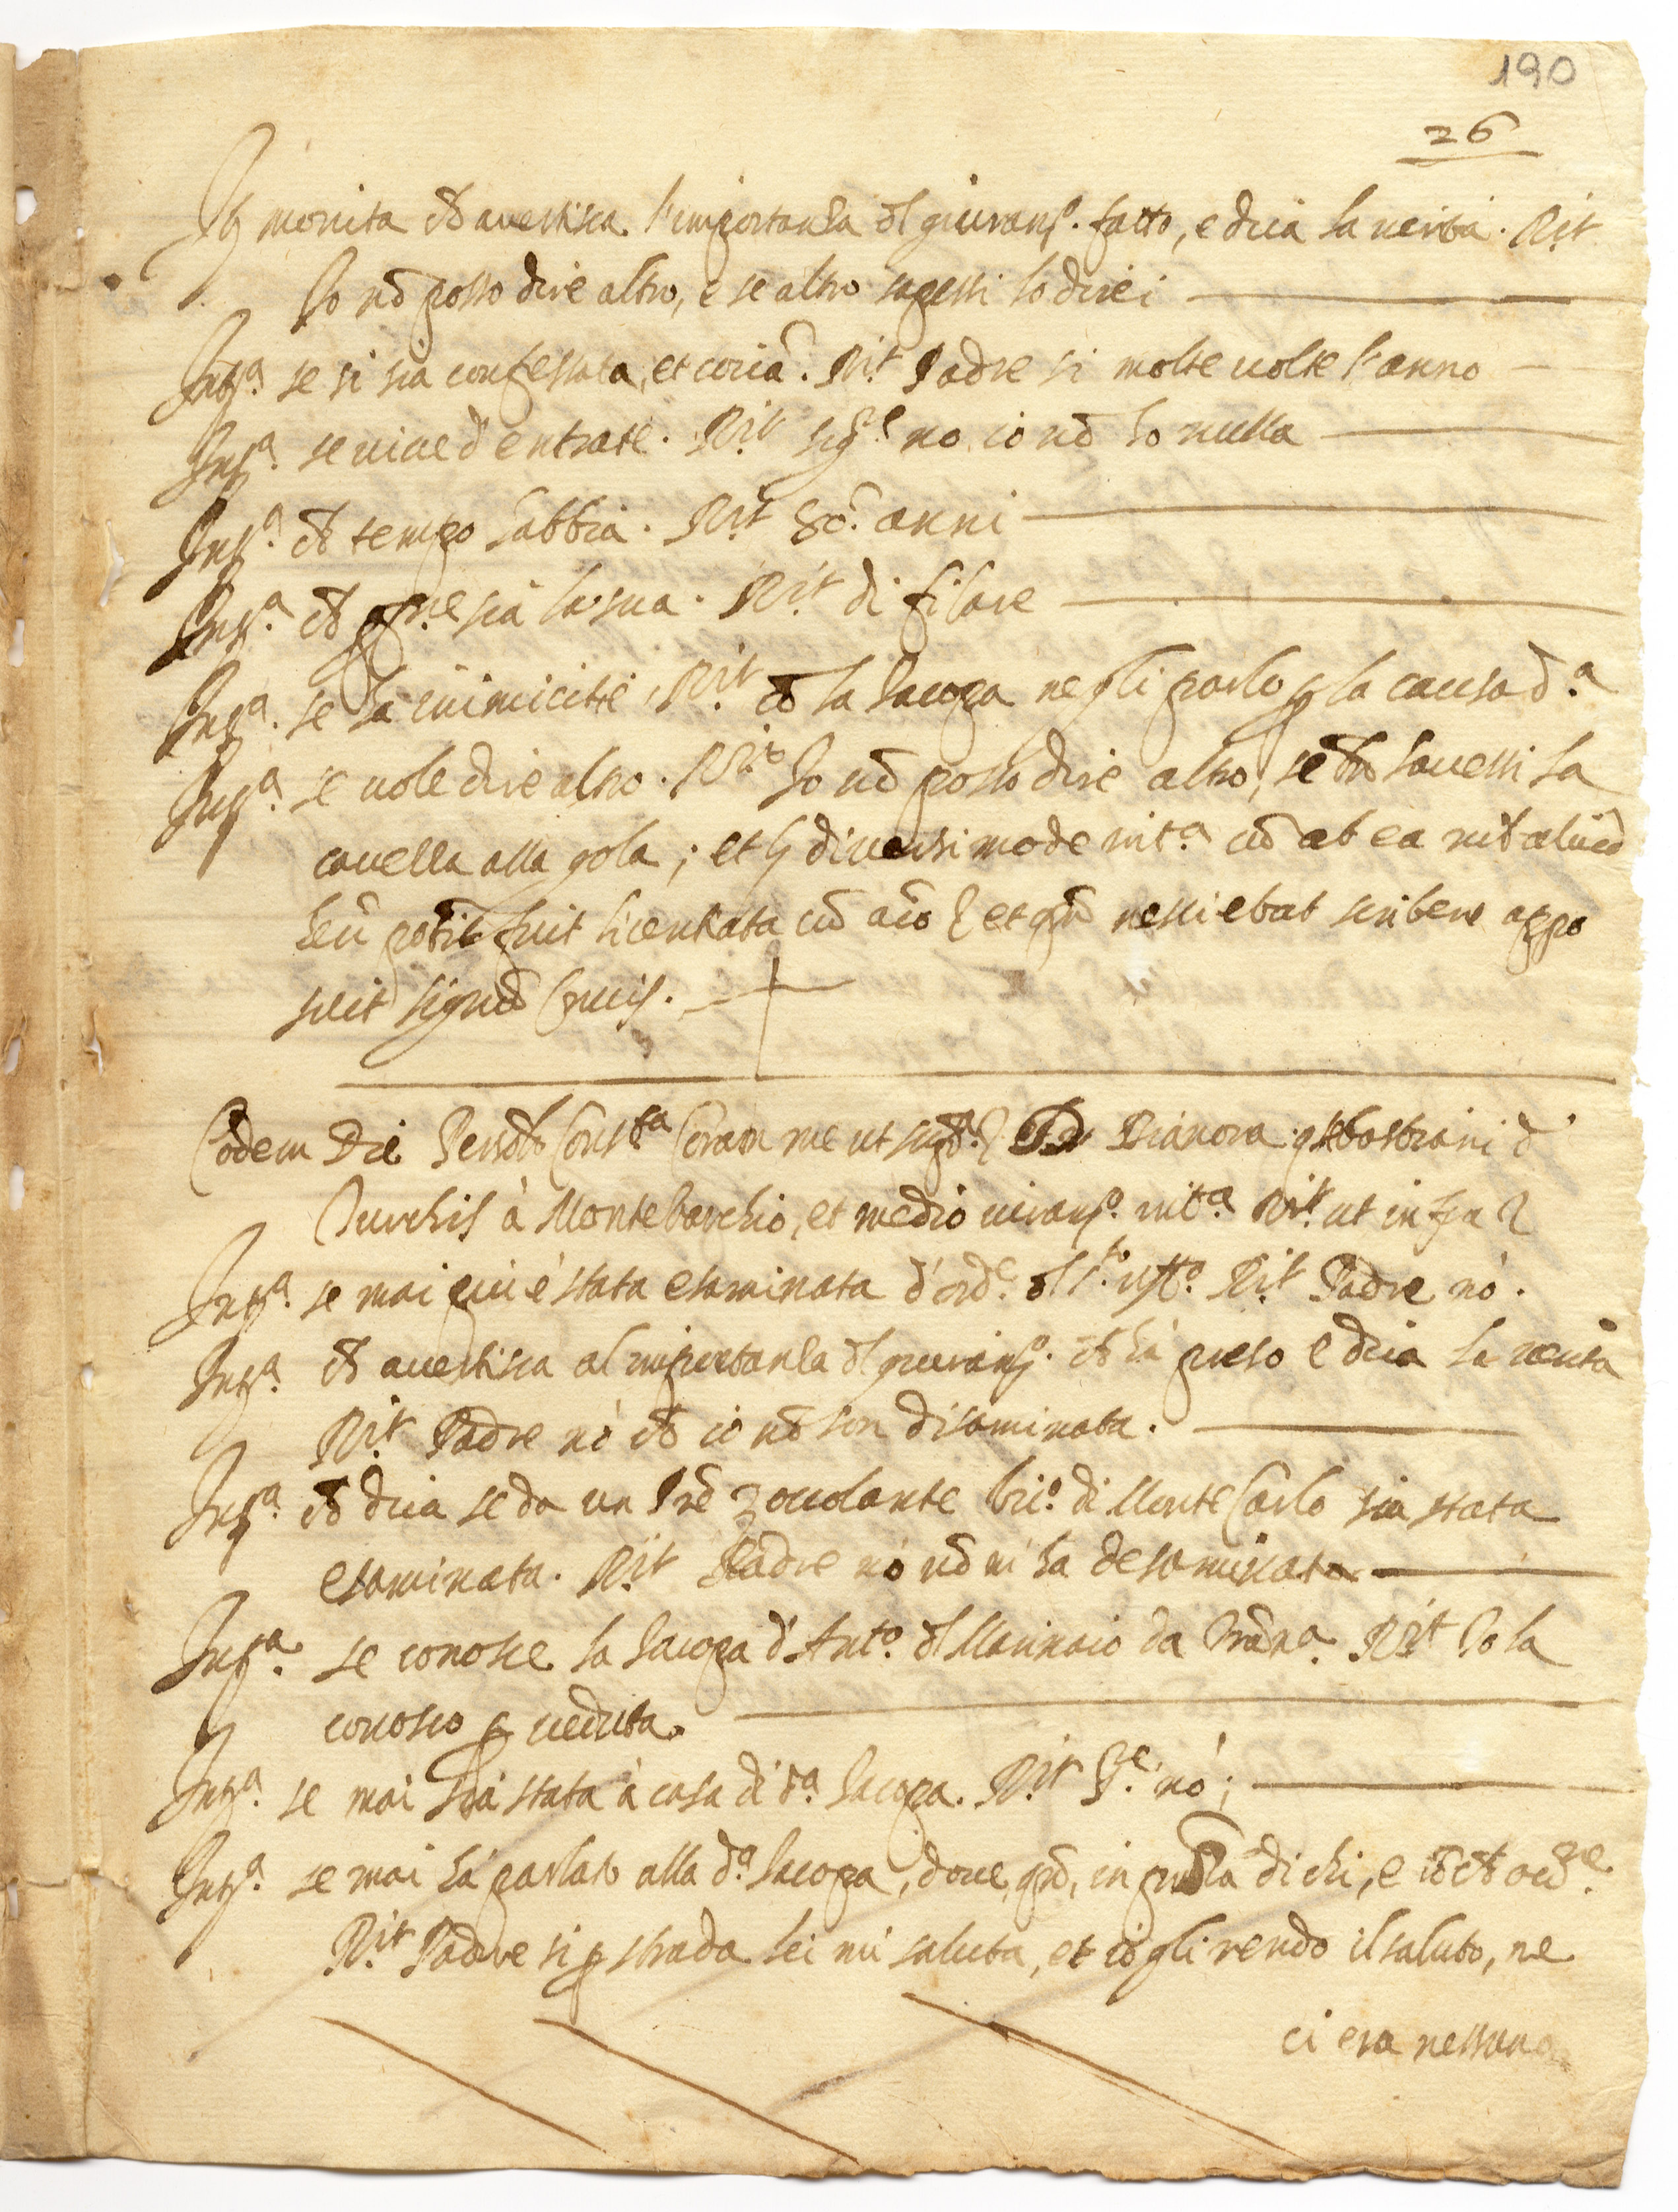 190
26
monita ch avertisca l'importanza del giuram.to fatto, e dica la verità. Rit
Io nō posso dire altro, e se altro sapessi lo direi
Int.a se si sia confessata, et comica.a Rit Padre si molte volte l'anno
Int.a se vive d'entrate. Rit sig.re no io nō ho nulla
Int.a ch tempo habbia. Rit 80. anni
Int.a ch sia la sua. Rit di filare
Int.a se ha inimicitie, Rit cō la Jacopa ne gli parlo p la causa d.a
Int.a se vole dire altro. Rit Io nō posso dire altro, se havessi la
covella alla gola; et diversimode int.a cū ab ea nil aliud
potūit fuit licentiata cū et quia nesciebat scribere appo
suit signū Crucis.
Eodem Die Personl.r Const.ta Coram me ut sup.a Dianora Bastiani d
Turchis à Montebarchio, et medio iuram.to int.a Rit ut infra
Int.a se mai più è stata esaminata d'ord.e del S.to Uff.o Rit Padre nò.
Int.a ch avertisca al importanza del giuram.to ch hà preso e dica la verità
Rit Padre nò ch io nō son disaminata.
Int.a ch dica se da un Prē zoccolante di Monte Carlo sia stata
esaminata. Rit Padre nò nō m'ha desaminata
Int.a se conosce la Jacopa d'Ant.o del Marinaio da Rit Io la
conosco p veduta.
Int.a se mai sia stata à casa di d.a Jacopa. Rit S.re nò;
Int.a se mai hà parlato alla d.a Jacopa, dove, qn̄, in di chi, e cō ch occ.ne
Rit Padre si p strada lei mi saluta, et io gli rendo il saluto, ne
ci era nessuno